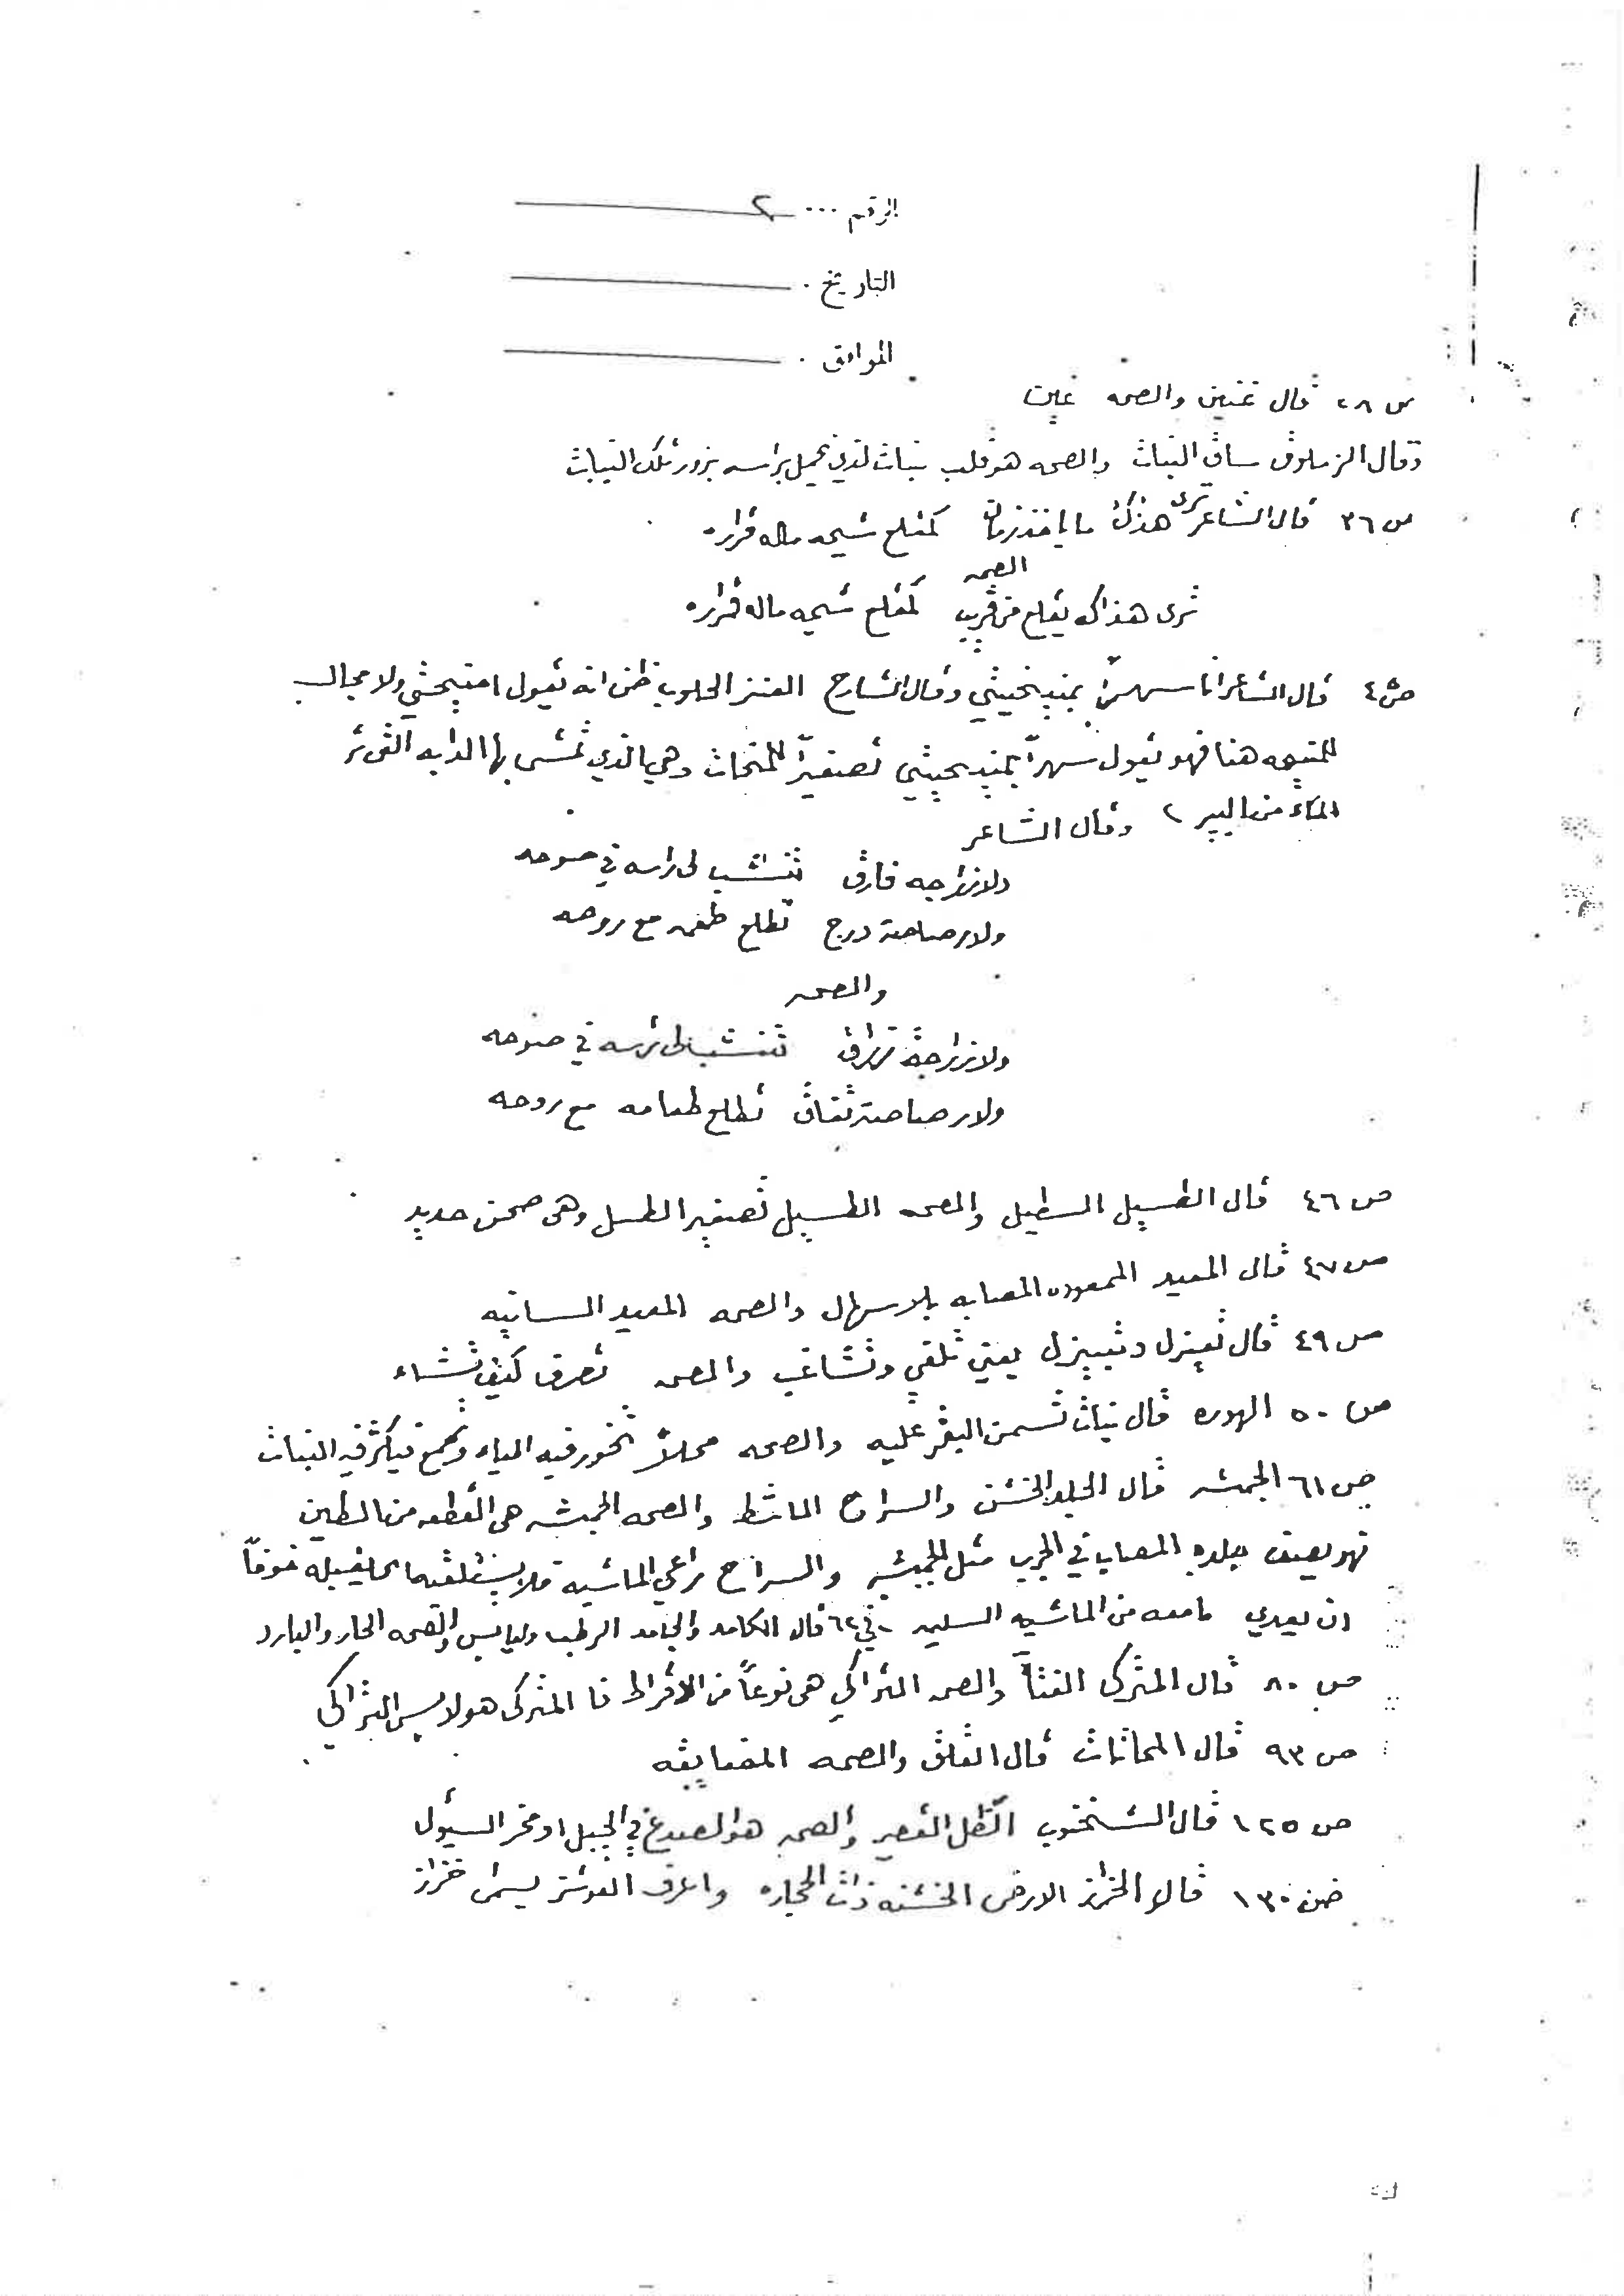 الرقم ... ٢
التاريخ .
الموافق .
ص ٢٨ قال غنين والصحه غين
وقال الزملوق ساق النبات والصحه هو قلب نبات لذي يحمل براسه بزور تلك النبات
ص ٣٦ قال الشاعر ترى هذاك ما ياخذ زمان كمقلع شيحه ماله قراره
الصحه
ترى هذاك يقلع من قريب كمقلع شيحه ماله قراره
ص ٤ قال الشاعر انا سهرٍ وقال الشارح العنز الحلوب ظن انه يقول ولا مجال
للمنيحه هنا فهو يقول سهراً تصغيراً للمنحات وهي الذي تمشي بها الدابه
الماء من البير ٢ وقال الشاعر
ولا زراجه فارق تنشب لى راسه في حلوحه
ولا رصاصة درج تطلع طعمه مع روحه
والصحه
ولا زراجة تنشب لى راسه في
ولا رصاصة تفاق تطلع طعامه مع روحه
ص ٤٦ قال الطسيل السطيل والصحه الطسيل تصغير الطسل وهي صحن حديد
ص ٤٧ قال المعيد الممعوده المصابه بلاسهال والصحه المعيد السانيه
ص ٤٩ قال يعني تلقي وتشاغب والصحه تصرف كيف تشاء
ص ٥٠ الهوره قال نبات تسمن البقر عليه والصحه محلاً تخور فيه المياه وتجمع فيكثر فيه النبات
ص ٦١ الجبشه قال الجلد الخشن والسراح الماشط والصحه الجبشه هي القطعه من الطين
فهو يصف جلده المصاب في الجرب مثل الجبشه والسراح راعي الماشيه فلا خوفاً
ان يعدي مامعه من الماشيه السليمه - في ٦٢ قال الكامد والجامد الرطب وليابس والصحه الحار والبارد
ص ٨٠ قال المتركى الفتاً والصحه التراكي هي نوعاً من الاقراط فا المتركى هو لابس التراكي
ص ٩٣ قال المحاتات قال القلق والصحه المضايقه
ص ١٢٥ قال الشنخوب الظل القصير والصحه هو الصدع في الجبل او مخر السيول
ص ١٣٠ قال الخراز الارض الخشنه ذات الحجاره واعرف يسمى خراز